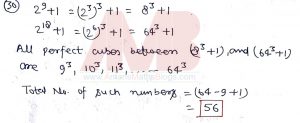 (30) 2⁹+1 = (2³)³+1 = 8³+1
2¹⁸+1 = (2⁶)³+1 = 64³+1
All perfect cubes between (8³+1), and (64³+1)
are 9³, 10³, 11³, ..... 64³
Total No. of such numbers = (64-9+1)
= 56